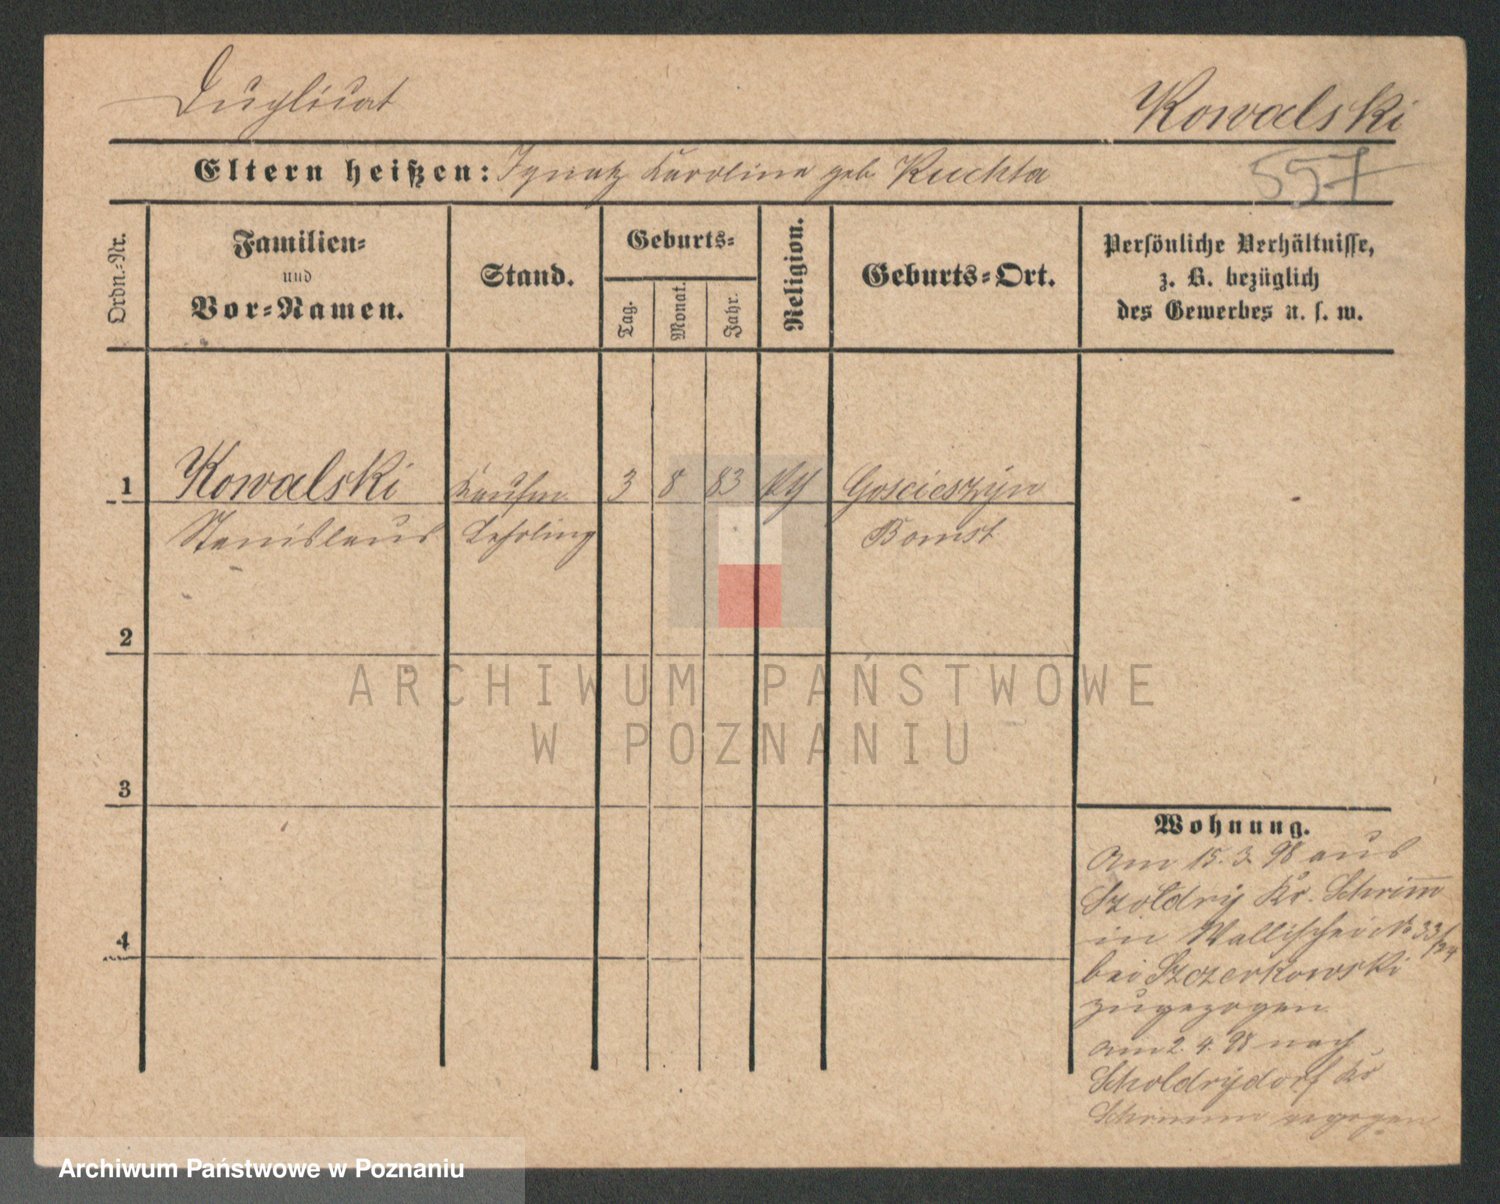 Duplicat
Kowalski
557
Eltern heißen: Ignatz Karolina geb Kuchta
Ordn.-Nr.
Familien-
und
Vor-Namen.
Stand.
Geburts-
Tag.
Monat.
Jahr.
Religion.
Geburts-Ort.
Persönliche Verhältnisse,
z. B. bezüglich
des Gewerbes u. s. w.
1 Kowalski Kaufm. 3 8 83 Goscieszyn
Stanislaus Lehrling Bomst
2
3
4
Wohnung.
Am 15. 3. 98 aus
Szoldry Kr. Schrimm
in Wallischei No 33/34
bei Szczerkowski
zugezogen
am 2. 4. 98 nach
Scholdrydorf Kr
Schrimm gezogen
ARCHIWUM PAŃSTWOWE
W POZNANIU
Archiwum Państwowe w Poznaniu